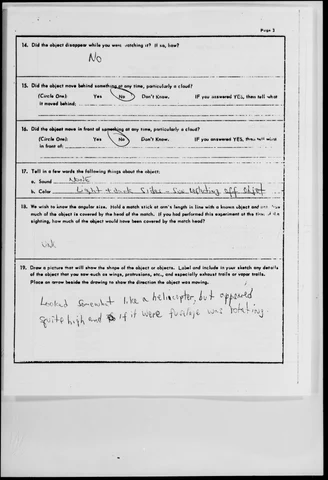 Page 2
14. Did the object disappear while you were watching it? If so, how?
No
15. Did the object move behind something at any time, particularly a cloud?
(Circle One): Yes No Don't Know. IF you answered YES, then tell what
it moved behind:
16. Did the object move in front of something at any time, particularly a cloud?
(Circle One): Yes No Don't Know. IF you answered YES, then tell what
in front of:
17. Tell in a few words the following things about the object:
a. Sound None
b. Color Light + dark sides - Sun off object
18. We wish to know the angular size. Hold a match stick at arm's length in line with a known object and note how
much of the object is covered by the head of the match. If you had performed this experiment at the time of the
sighting, how much of the object would have been covered by the match head?
Unk
19. Draw a picture that will show the shape of the object or objects. Label and include in your sketch any details
of the object that you saw such as wings, protrusions, etc., and especially exhaust trails or vapor trails.
Place an arrow beside the drawing to show the direction the object was moving.
Looked somewhat like a helicopter, but appeared
quite high and if it were fuselage was rotating.